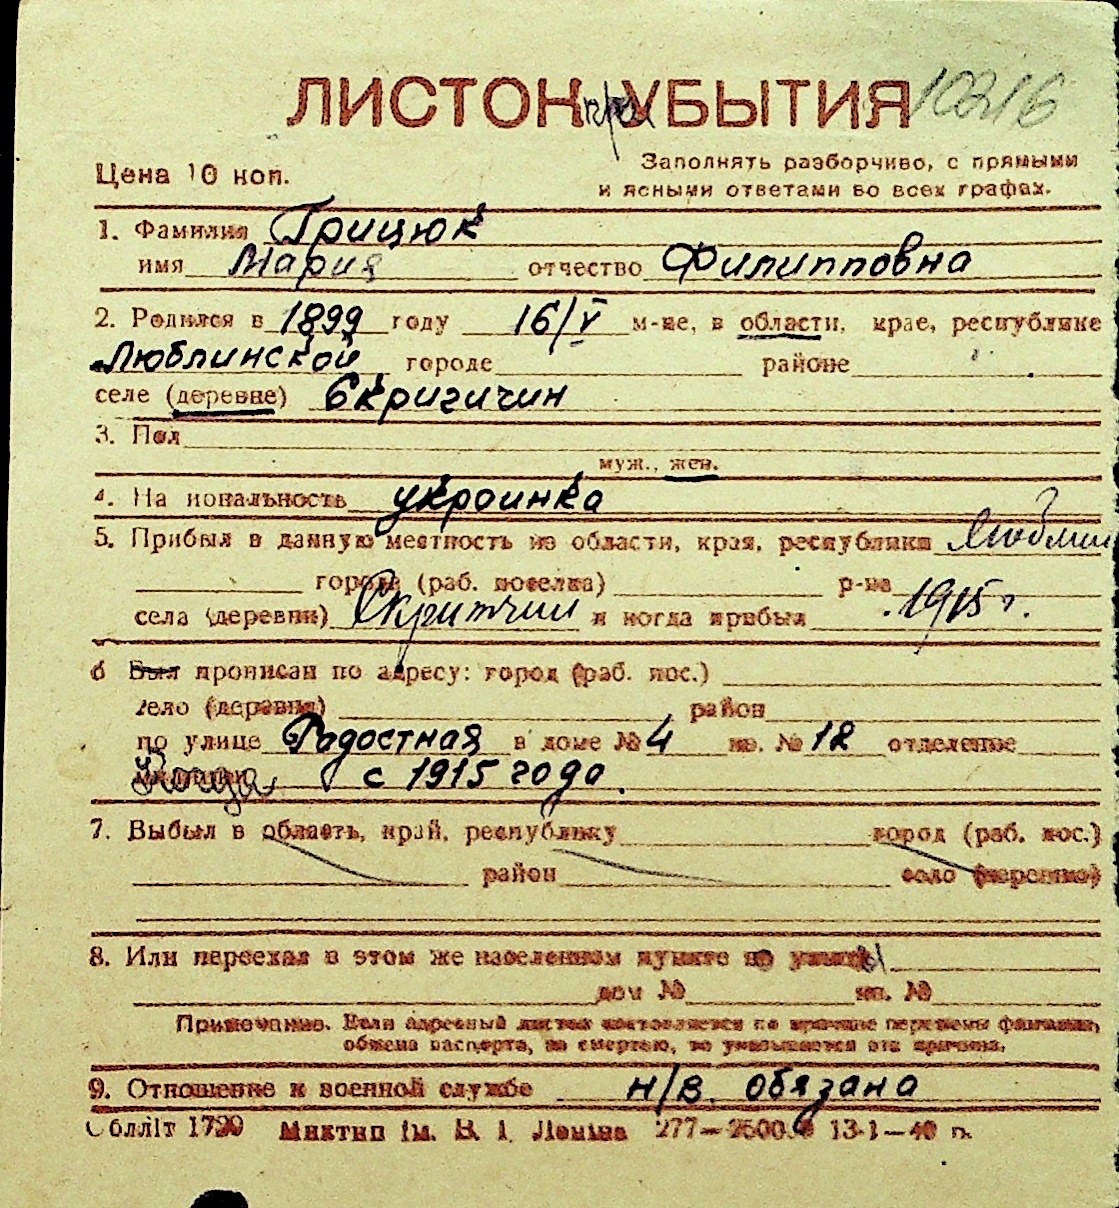 ЛИСТОК УБЫТИЯ 10316
Цена 10 коп.
Заполнять разборчиво, с прямыми
и ясными ответами во всех графах.
1. Фамилия Грицюк
имя Мария отчество Филипповна
2. Родился в 1899 году 16/V м-це, в области, крае, республике
Люблинской городе районе
селе (деревне) Скригичин
3. Пол
муж., жен.
4. На иональность украинка
5. Прибыл в данную местность из области, края, республики Люблин
города (раб. поселка) р-на
села (деревни) и когда прибыл 1915 г.
6 Был прописан по адресу: город (раб. пос.)
село (деревня) район
по улице Радостная в доме № 4 кв. № 12 отделение
с 1915 года.
7. Выбыл в область, край, республику город (раб. пос.)
район село (деревню)
8. Или переехал в этом же населенном пункте
дом № кв. №
Примечание. Если адресный листок составляется по причине перемены фамилии,
обмена паспорта, за смертью, то указывается эта причина.
9. Отношение к военной службе н/в. обязана
Облліт 1790 Миктип ім. В. І. Леніна 277— 13-1—40 г.